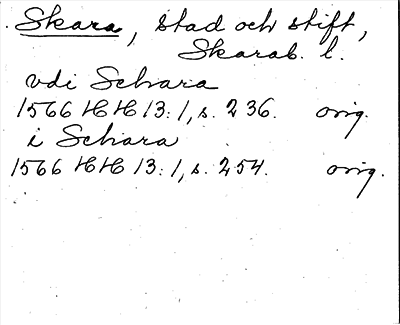 Skara, stad och stift,
Skarab. l.
vdi Schara
1566 HH 13:1, s. 236. orig.
i Schara
1566 HH 13:1, s. 254. orig.